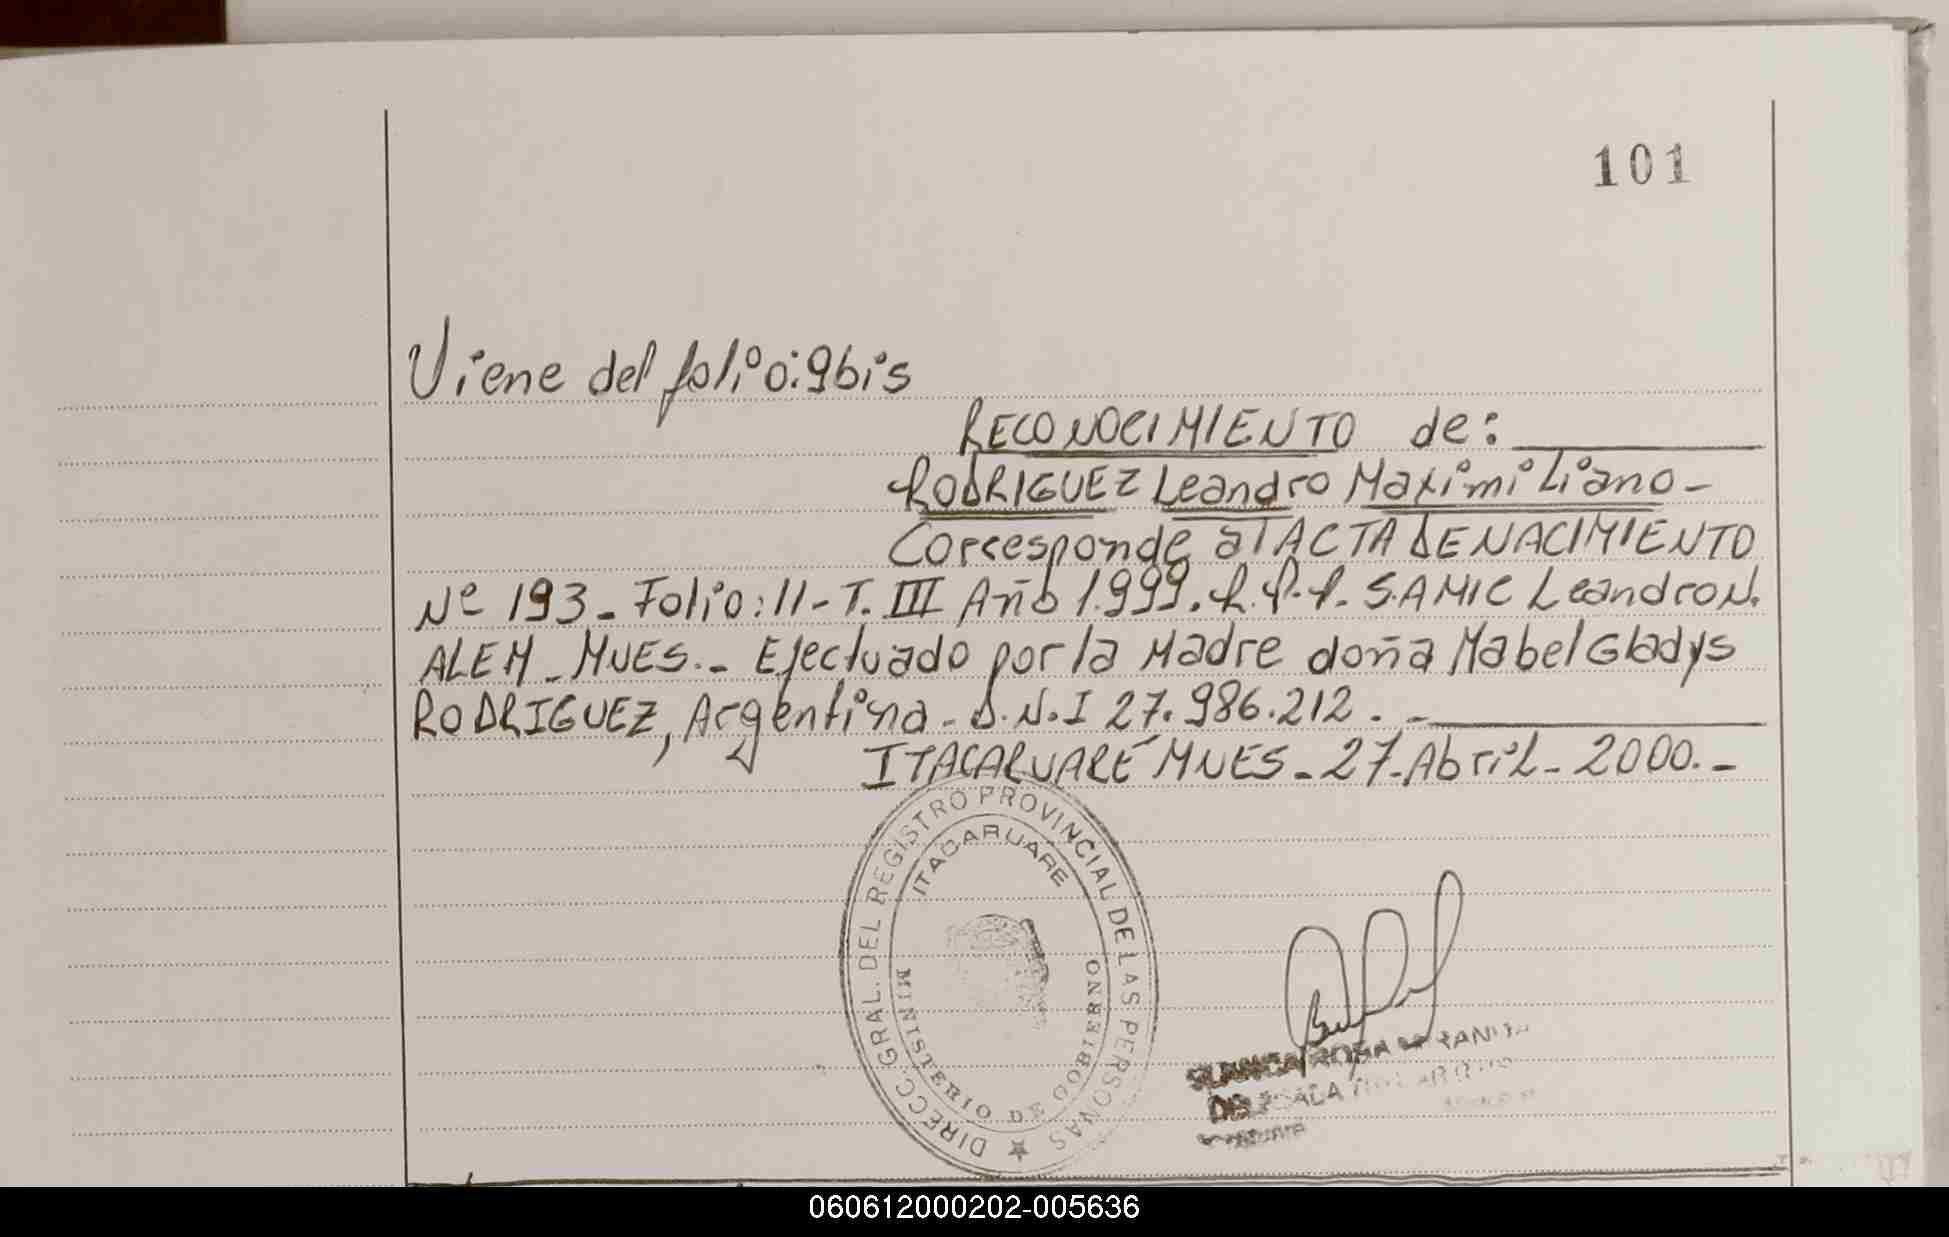 101
Viene del folio: 9bis
RECONOCIMIENTO de:
RODRIGUEZ Leandro Maximiliano-
Corresponde al ACTA DE NACIMIENTO
Nº 193- Folio: 11- T. III Año 1.999. R.P.P. S.AMIC Leandro N.
ALEM- MNES.- Efectuado por la Madre doña Mabel Gladys
RODRIGUEZ, Argentina- D.N.I 27.986.212. -
ITACARUARÉ MNES- 27-Abril- 2000.-
DIRECC. GRAL. DEL REGISTRO PROVINCIAL DE LAS PERSONAS
ITACARUARE
MINISTERIO DE GOBIERNO
BLANCA ROSA
DELEGADA
060612000202-005636